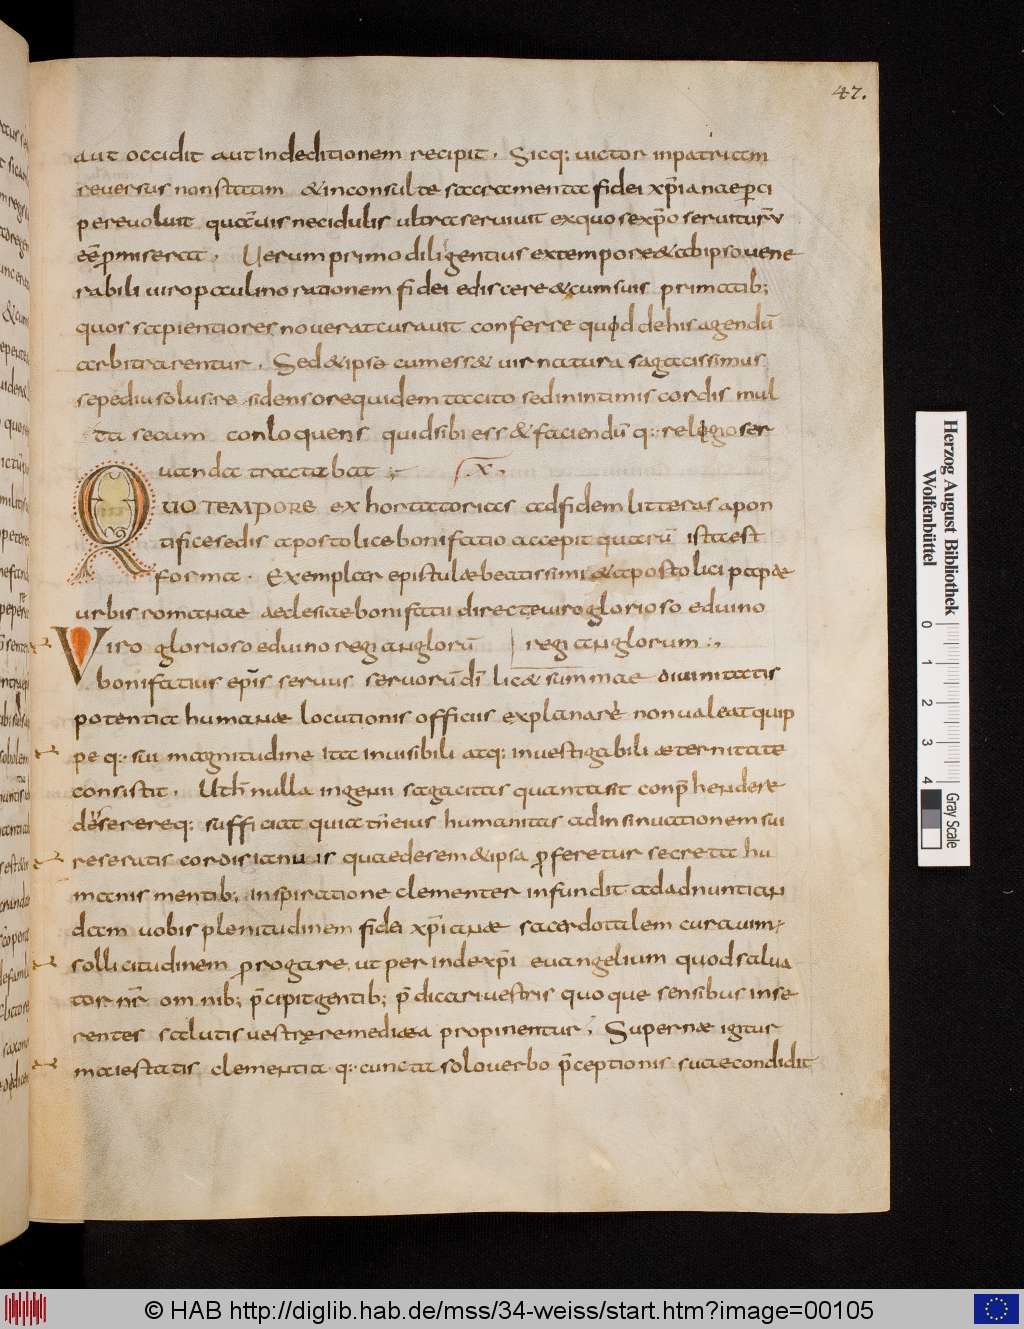 47.
aut occidit aut indeditionem recipit. Sicq; uictor inpatriam
reuersus nonstatim &inconsulte sacramenta fidei xp̄ianae p̱ci
pereuoluit quāuis necidulis ultra seruiuit exquo sexp̄o seruiturū
eē p̱miserat. Uerum primo diligentius extempore &abipso uene
rabili uiro paulino rationem fidei ediscere &cumsuis primatib;
quos sapientiores nouerat curauit conferre quid dehis agendū
arbitrarentur. Sed &ipse cumess& uir natura sagacissimus
sepe diu solus residens ore quidem tacito sed inintimis cordis mul
ta secum conloquens quidsibi ess& faciendū q: religio ser
uanda tractabat; .x.
QUO TEMPORE exhortatorias adfidem litteras apon
tifice sedis apostolice bonifatio accepit quarū ista est
forma. Exemplar epistulae beatissimi &apostolici papae
urbis romanae aeclesiae bonifatii directe uiro glorioso eduino
Viro glorioso eduino regi anglorū regi anglorum:,
bonifatius ep̄s seruus seruorū dī lic& summae diuinitatis
potentia humanae locutionis officiis explanare non ualeat quip
pe q: sui magnitudine ita inuisibili atq; inuestigabili aeternitate
consistat. Ut h nulla ingenii sagacitas quanta sit conp̄hendere
deserereq: sufficiat quia tn̄ eius humanitas ad insinuationem sui
reseratis cordis ianuis quae de sem&ipsa p̱feretur secreta hu
manis mentib; inspiratione clementer infundit ad adnuntian
dam uobis plenitudinem fidei xp̄ianae sacerdotalem curauim;
sollicitudinem p̱rogare ut perinde xp̄i euangelium quod salua
tor nr̄ omnib; p̄cipit gentib; p̄dicari uestris quoque sensibus inse
rentes salutis uestrę remediaea propinentur; Supernae igitur
maiestatis clementia q: cuncta solo uerbo p̄ceptionis suae condidit
Herzog August Bibliothek
Wolfenbüttel
0 1 2 3 4
Gray Scale
© HAB http://diglib.hab.de/mss/34-weiss/start.htm?image=00105